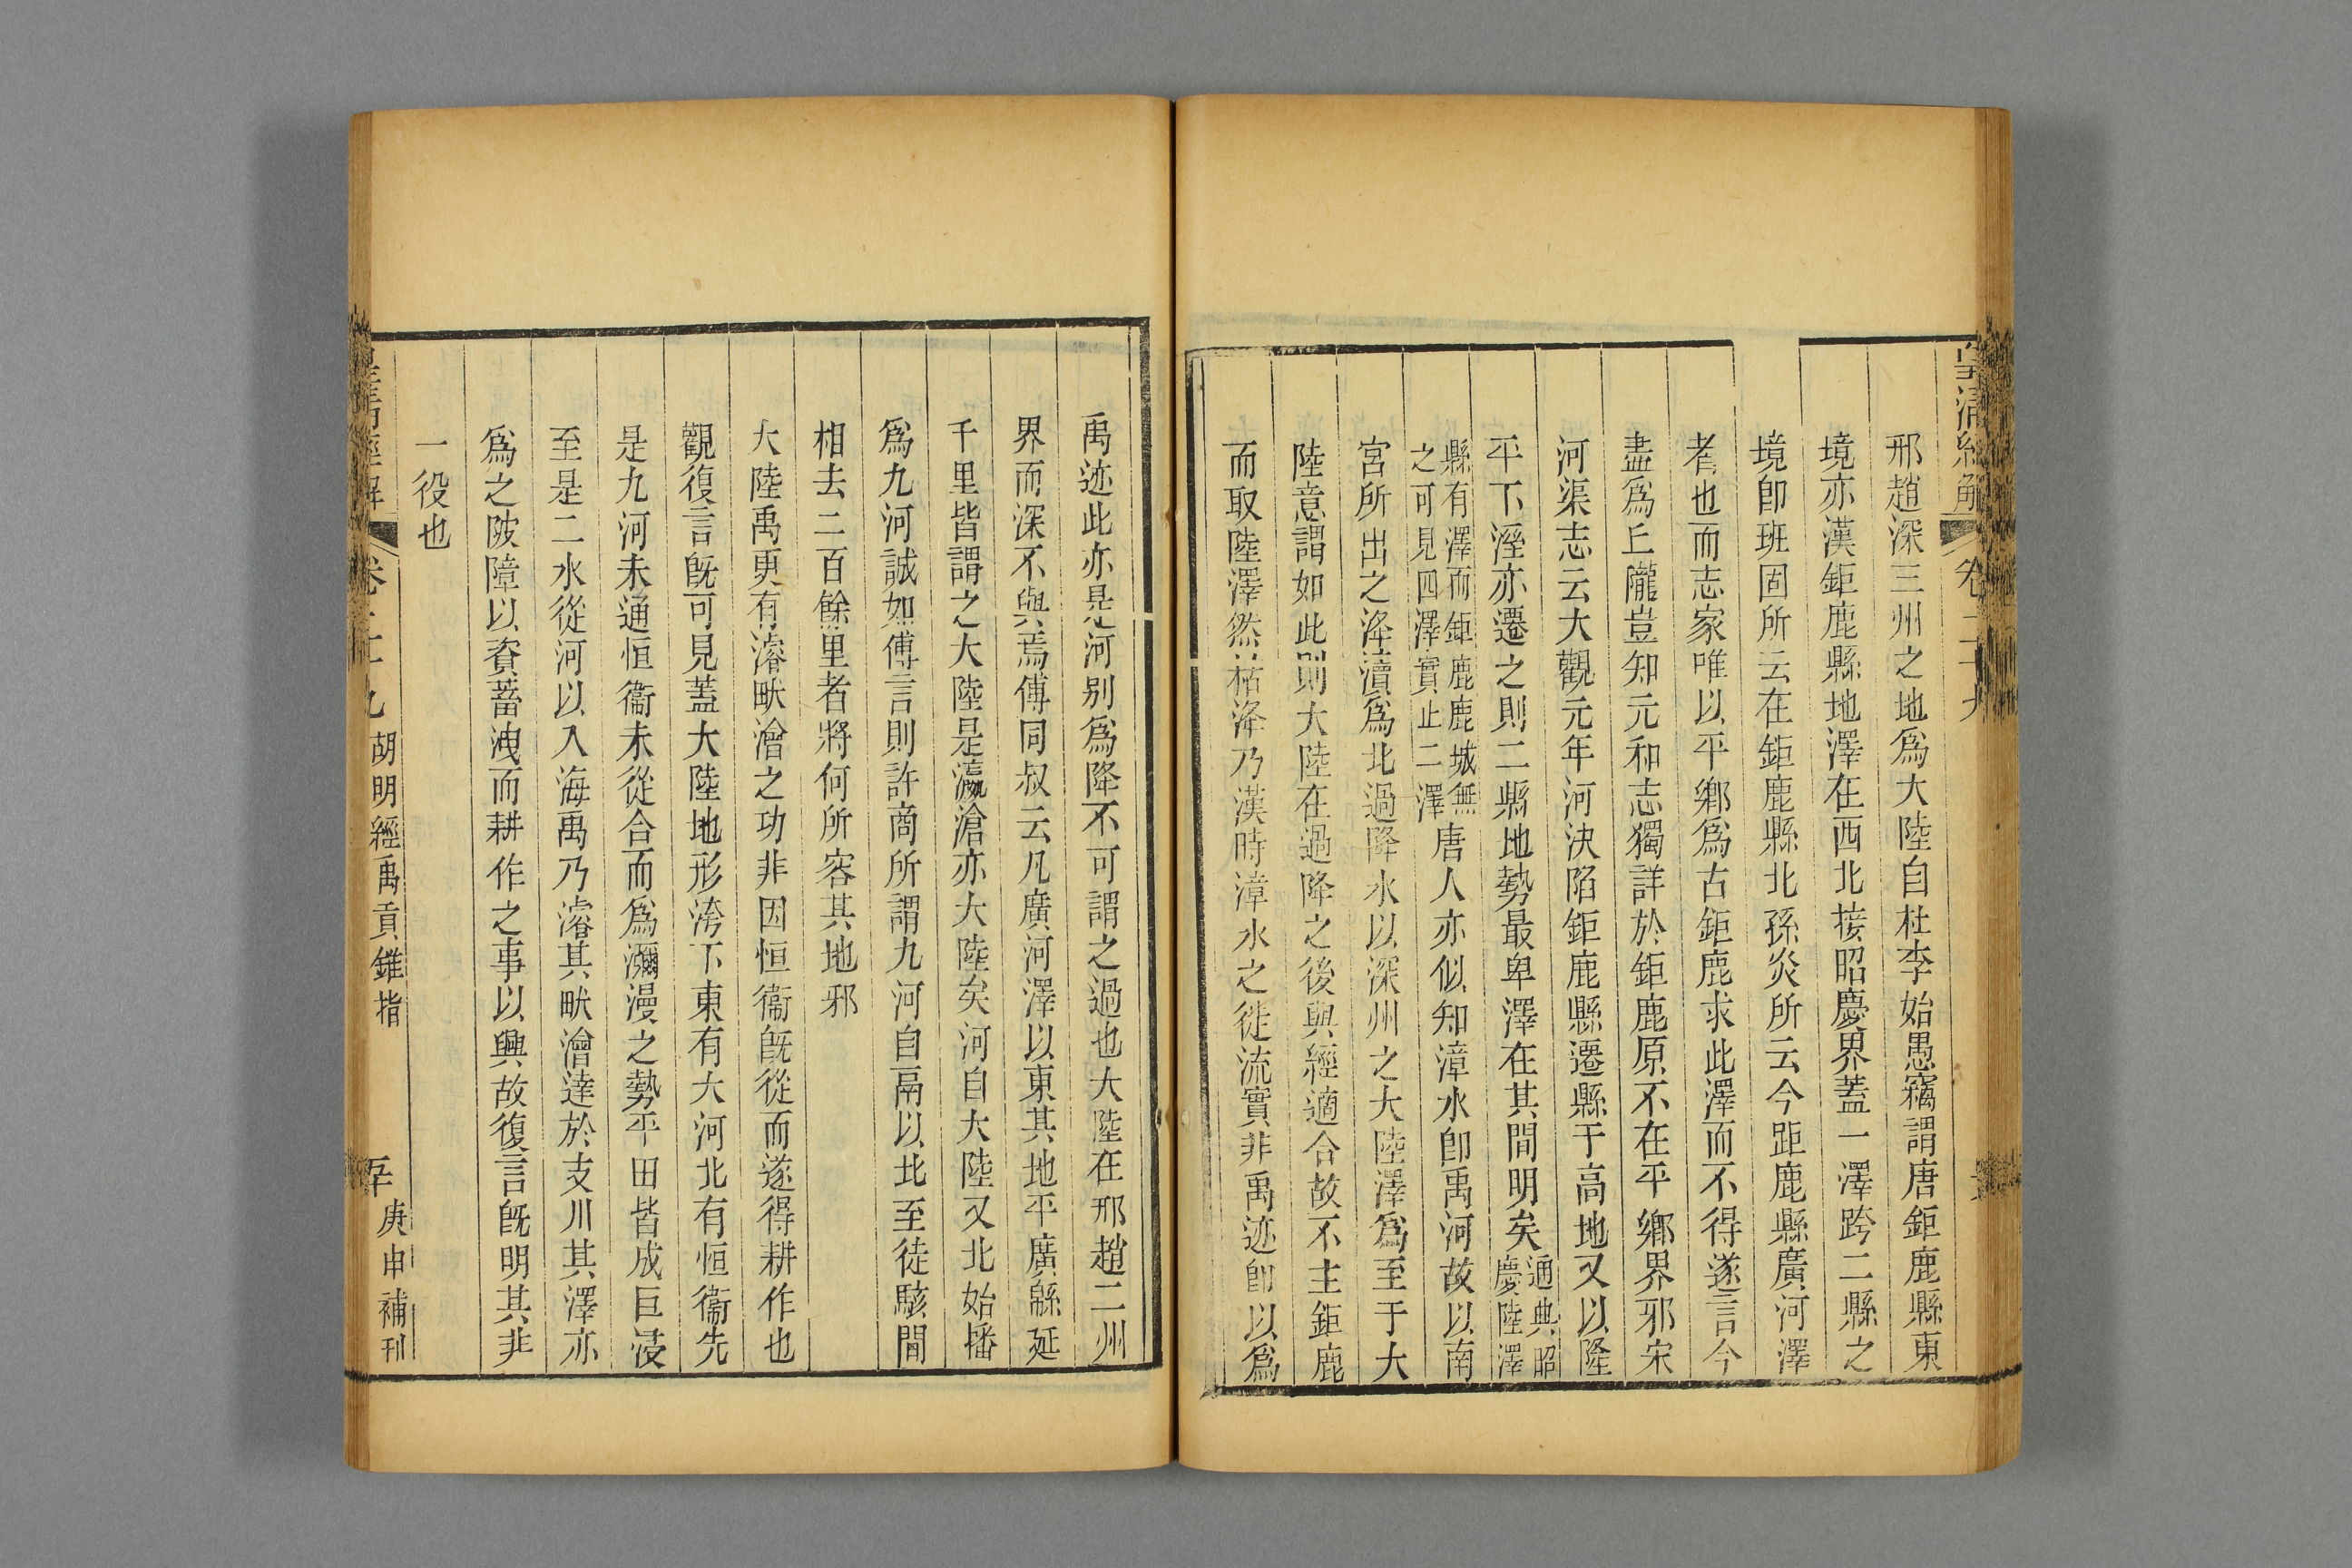 皇清經解 卷二十九
邢趙深三州之地爲大陸自杜李始愚竊謂唐鉅鹿縣東
境亦漢鉅鹿縣地澤在西北接昭慶界蓋一澤跨二縣之
境卽班固所云在鉅鹿縣北孫炎所云今鉅鹿縣廣河澤
者也而志家唯以平鄉爲古鉅鹿求此澤而不得遂言今
盡爲丘隴豈知元和志獨詳於鉅鹿原不在平鄉界邪宋
河渠志云大觀元年河決陷鉅鹿縣遷縣于高地又以隆
平下溼亦遷之則二縣地勢最卑澤在其間明矣通典昭
慶陸澤
縣有澤而鉅鹿鹿城無
之可見四澤實止二澤唐人亦似知漳水卽禹河故以南
宮所出之洚瀆爲北過降水以深州之大陸澤爲至于大
陸意謂如此則大陸在過降之後與經適合故不主鉅鹿
而取陸澤然枯洚乃漢時漳水之徙流實非禹迹卽以爲
禹迹此亦是河别爲降不可謂之過也大陸在邢趙二州
界而深不與焉傅同叔云凡廣河澤以東其地平廣緜延
千里皆謂之大陸是瀛滄亦大陸矣河自大陸又北始播
爲九河誠如傅言則許商所謂九河自鬲以北至徒駭間
相去二百餘里者將何所容其地邪
大陸禹更有濬畎澮之功非因恒衞旣從而遂得耕作也
觀復言旣可見蓋大陸地形洿下東有大河北有恒衞先
是九河未通恒衞未從合而爲瀰漫之勢平田皆成巨浸
至是二水從河以入海禹乃濬其畎澮達於支川其澤亦
爲之陂障以資蓄洩而耕作之事以興故復言旣明其非
一役也
皇淸經解 卷二十九 胡明經禹貢錐指 庚申補刊